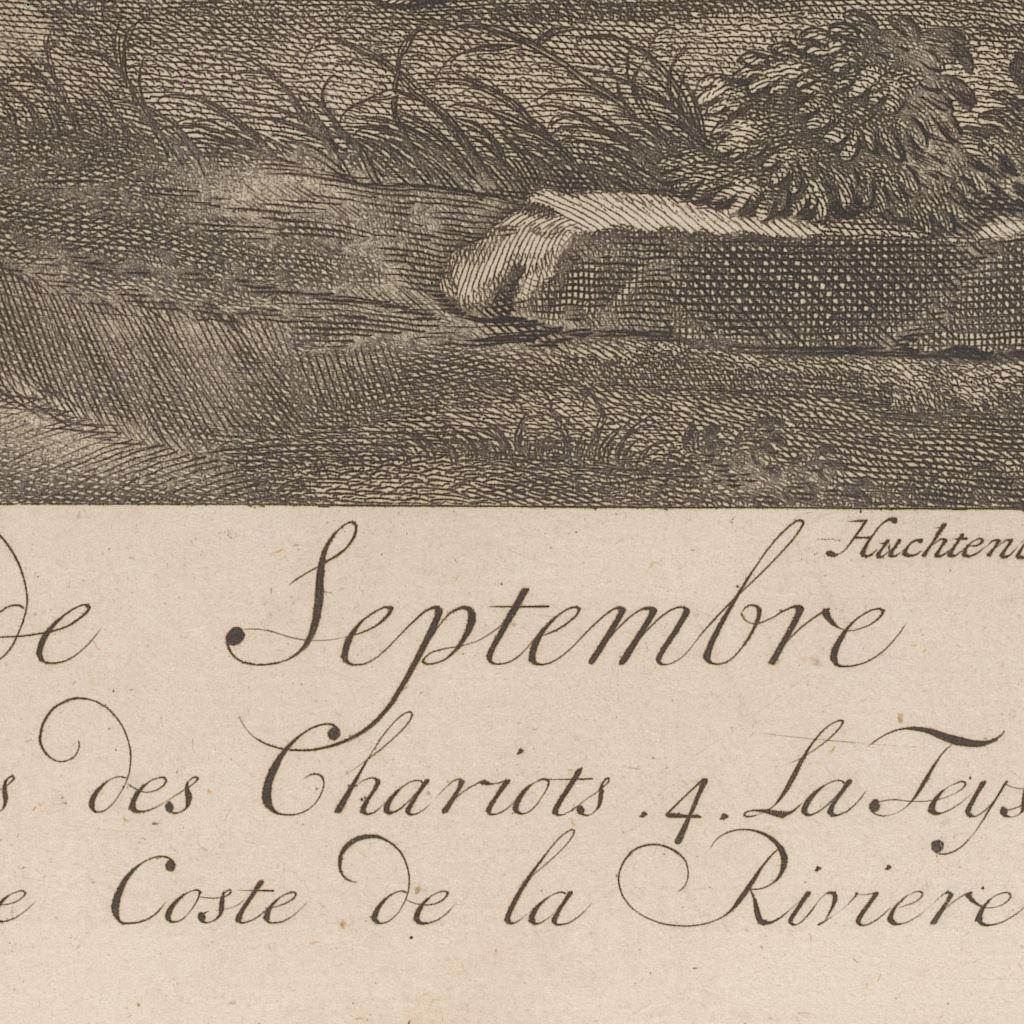 Huchtenb
de Septembre
s des Chariots . 4 . La Teys
e Coste de la Riviere